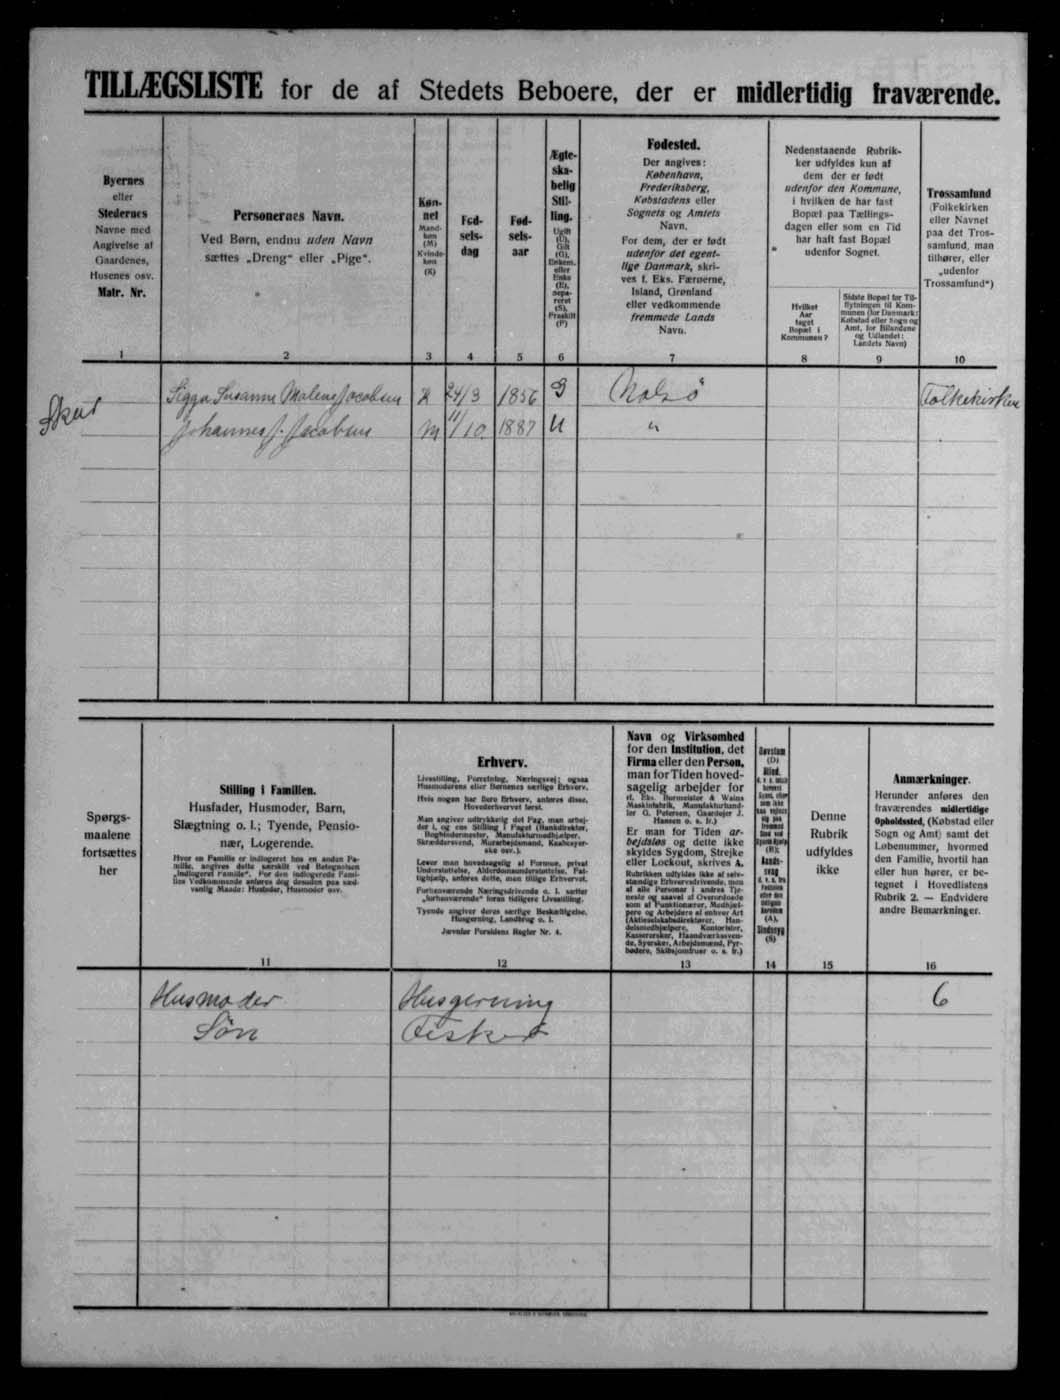 TILLÆGSLISTE for de af Stedets Beboere, der er midlertidig fraværende.
Byernes
eller
Stedernes
Navne med
Angivelse af
Gaardenes,
Husenes osv.
Matr. Nr.
1
Personernes Navn.
Ved Børn, endnu uden Navn
sættes „Dreng“ eller „Pige“.
2
Køn-
net
Mand-
køn
(M)
Kvinde-
køn
(K)
3
Fød-
sels-
dag
4
Fød-
sels-
aar
5
Ægte-
ska-
belig
Stil-
ling.
Ugift
(U),
Gift
(G),
Enkem.
eller
Enke
(E),
Sepa-
reret
(S),
Fraskilt
(F)
6
Fødested.
Der angives:
København,
Frederiksberg,
Købstadens eller
Sognets og Amtets
Navn.
For dem, der er født
udenfor det egent-
lige Danmark, skri-
ves f. Eks. Færøerne,
Island, Grønland
eller vedkommende
fremmede Lands
Navn.
7
Nedenstaaende Rubrik-
ker udfyldes kun af
dem der er født
udenfor den Kommune,
i hvilken de har fast
Bopæl paa Tællings-
dagen eller som en Tid
har haft fast Bopæl
udenfor Sognet.
Hvilket
Aar
taget
Bopæl i
Kommunen?
8
Sidste Bopæl før Til-
flytningen til Kom-
munen (for Danmark:
Købstad eller Sogn og
Amt, for Bilandene
og Udlandet:
Landets Navn)
9
Trossamfund
(Folkekirken
eller Navnet
paa det Tros-
samfund, man
tilhører, eller
„udenfor
Trossamfund“)
10
Sigga Susanne Malene Jacobsen K 24/3 1856 G Nolsö Folkekirken
Johannes J. Jacobsen M 11/10 1887 U "
Spørgs-
maalene
fortsættes
her
Stilling i Familien.
Husfader, Husmoder, Barn,
Slægtning o. l.; Tyende, Pensio-
nær, Logerende.
Hvor en Familie er indlogeret hos en anden Fa-
milie, angives dette særskilt ved Betegnelsen
„indlogeret Familie“. For den indlogerede Fami-
lies Vedkommende anføres dog desuden paa sæd-
vanlig Maade: Husfader, Husmoder osv.
11
Erhverv.
Livsstilling, Forretning, Næringsvej; ogsaa
Husmoderens eller Børnenes særlige Erhverv.
Hvis nogen har flere Erhverv, anføres disse,
Hovederhvervet først.
Man angiver udtrykkelig det Fag, man arbej-
der i, og ens Stilling i Faget (Bankdirektør,
Bogbindermester, Manufakturmedhjælper,
Skræddersvend, Murarbejdsmand, Kaabesyer-
ske osv.).
Lever man hovedsagelig af Formue, privat
Understøttelse, Alderdomsunderstøttelse, Fat-
tighjælp, anføres dette, men tillige Erhvervet.
Forhenværende Næringsdrivende o. l. sætter
„forhenværende“ foran tidligere Livsstilling.
Tyende angiver deres særlige Beskæftigelse,
Husgerning, Landbrug o. l.
Jævnfør Forsidens Regler Nr. 4.
12
Navn og Virksomhed
for den Institution, det
Firma eller den Person,
man for Tiden hoved-
sagelig arbejder for
(f. Eks. Burmeister & Wains
Maskinfabrik, Manufakturhand-
ler G. Petersen, Gaardejer J.
Hansen o. s. fr.)
Er man for Tiden ar-
bejdsløs og dette ikke
skyldes Sygdom, Strejke
eller Lockout, skrives A.
Rubrikken udfyldes ikke af selv-
stændige Erhvervsdrivende, men
af alle Personer i andres Tje-
neste og saavel af Overordnede
som af Funktionærer, Medhjæl-
pere og Arbejdere af enhver Art
(Aktieselskabsdirektører, Han-
delsmedhjælpere, Kontorister,
Kasserersker, Haandværkssven-
de, Syersker, Arbejdsmænd, Fyr-
bødere, Skibsjomfruer o. s. fr.)
13
Døvstum
(D)
Blind,
(B);
Aands-
svag
(A),
Sindssyg
(S)
14
Denne
Rubrik
udfyldes
ikke
15
Anmærkninger.
Herunder anføres den
fraværendes midlertidige
Opholdssted, (Købstad eller
Sogn og Amt) samt det
Løbenummer, hvormed
den Familie, hvortil han
eller hun hører, er be-
tegnet i Hovedlistens
Rubrik 2. — Endvidere
andre Bemærkninger.
16
Husmoder Husgerning 6
Søn Fisker